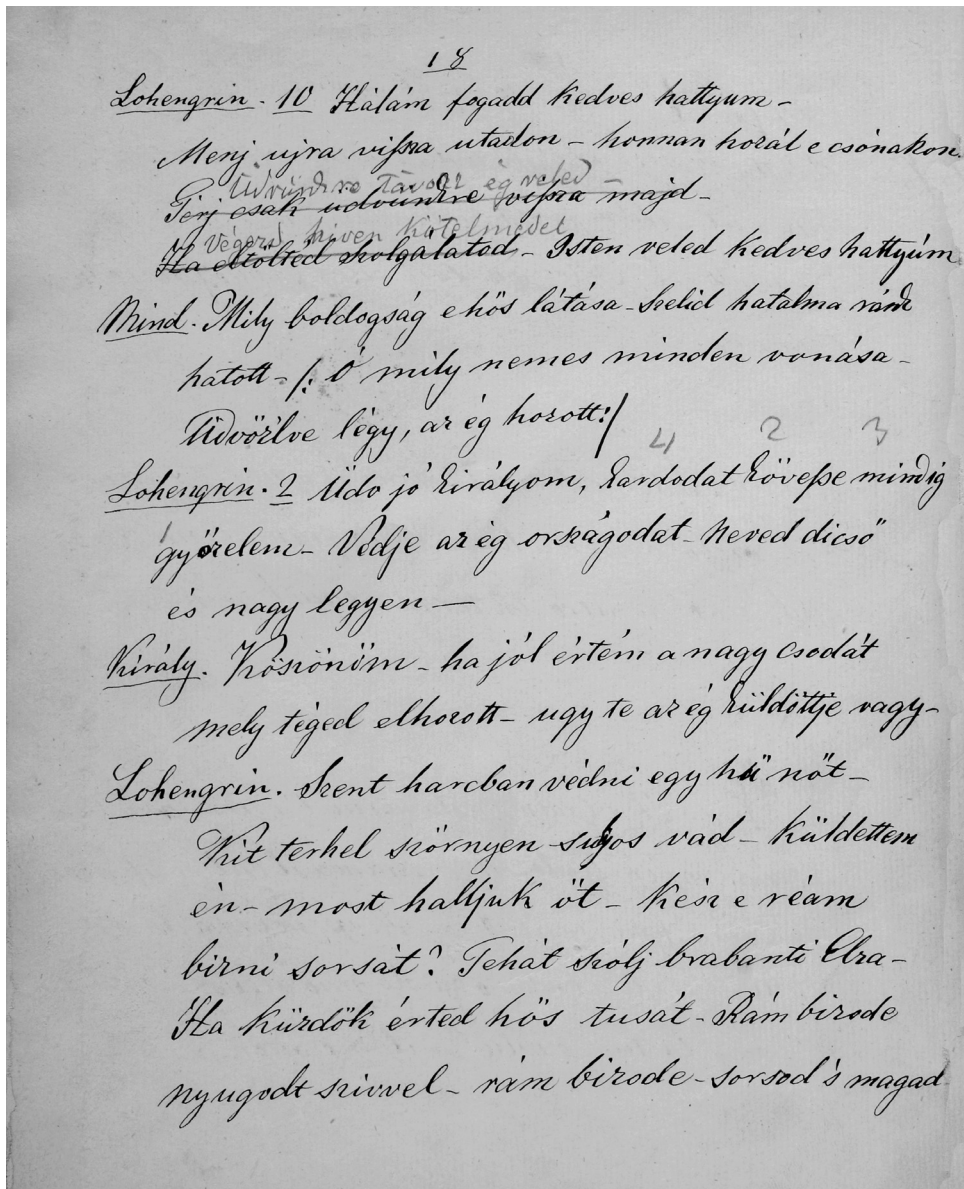 18
Lohengrin. 10 Hálám fogadd kedves hattyum –
Menj ujra vissza utadon – honnan hozál e csónakon.
Üdvünkre távozz ég veled –
Térj csak üdvünkre vissza majd –
Végezd hiven kötelmedet
Ha eltölted szolgálatod – Isten veled kedves hattyúm
Mind. Mily boldogság e hös látása – Szelid hatalma ránk
hatott – /: Ó mily nemes minden vonása –
Üdvözlve légy, az ég hozott :/
4 2 3
Lohengrin. 2 Üdv jó királyom, kardodat kövesse mindig
1
győzelem – Védje az ég országodat – Neved dicső
és nagy legyen —
Király. Köszönöm – ha jól értém a nagy csodát
mely téged elhozott – ugy te az ég küldöttje vagy –
Lohengrin. Szent harcban védni egy hű nöt –
Kit terhel szörnyen sulyos vád – Küldettem
én – most halljuk öt – Kész e réam
bizni sorsát? Tehát szólj brabanti Elza –
Ha küzdök érted hös tusát – Rám bizode
nyugodt szivvel – rám bizode – sorsod 's magad